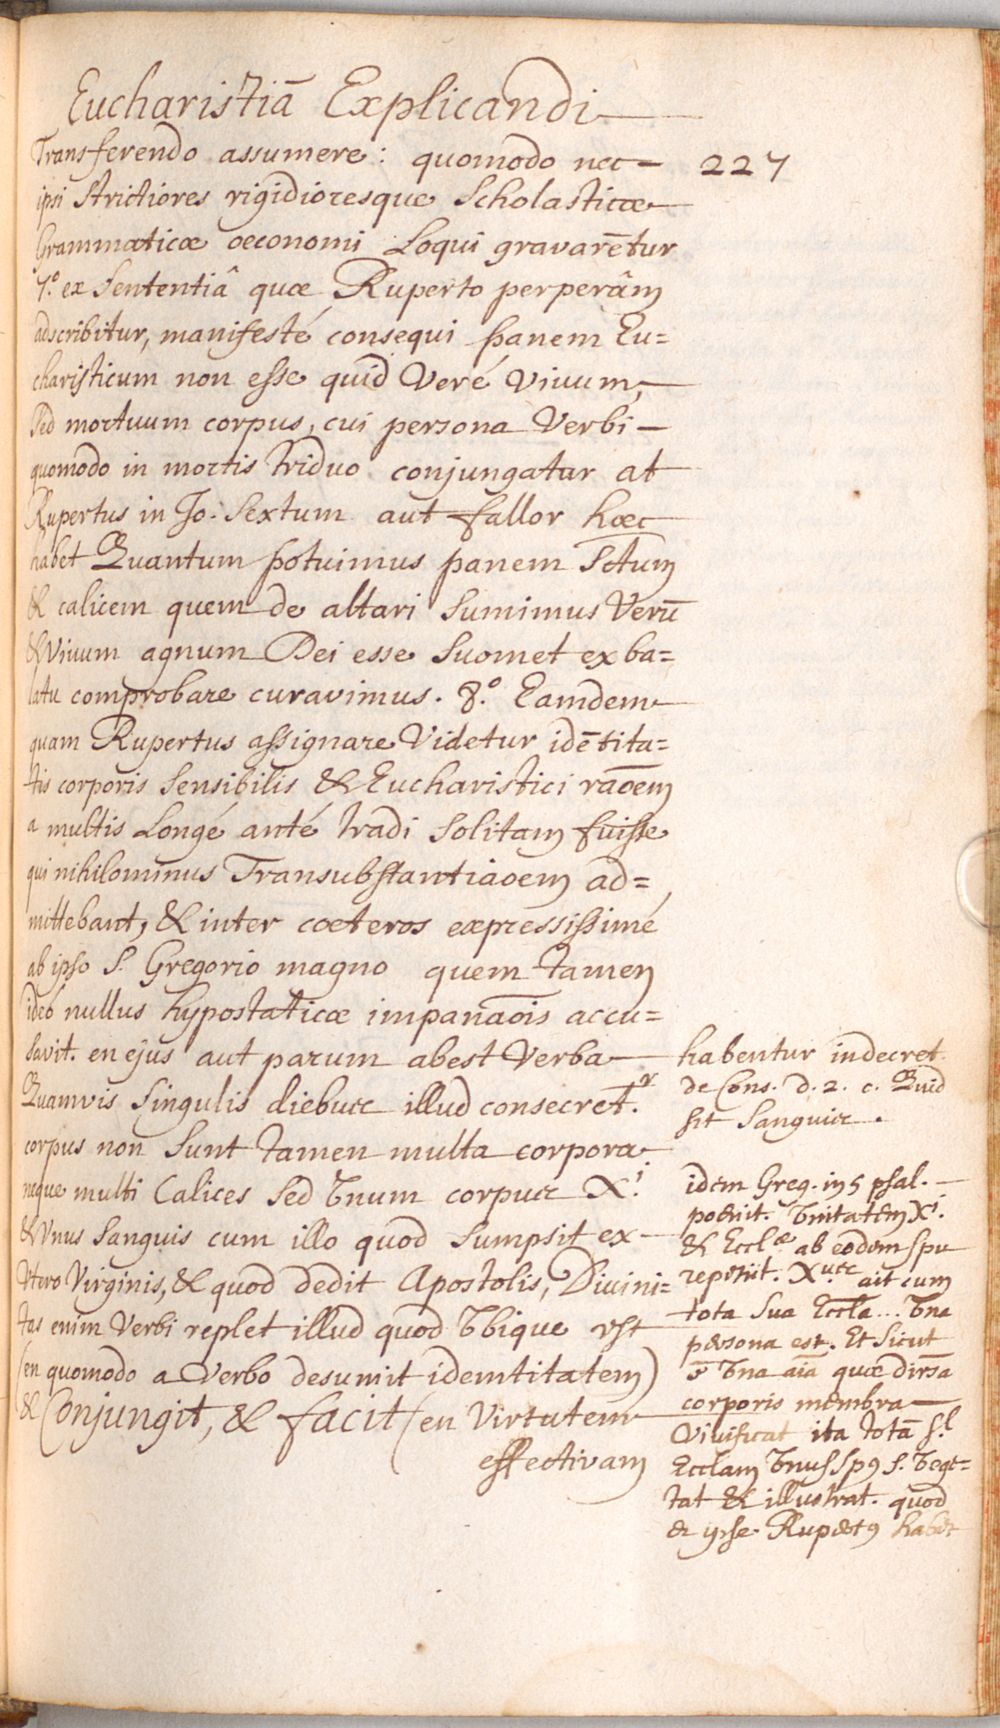 Eucharistiā Explicandi
227
Transferendo assumere: quomodo nec
ipsi strictiores rigidioresque Scholasticæ
Grammaticæ œconomi Loqui gravarētur
7.º ex Sententiâ quæ Ruperto perperâm
adscribitur, manifesté consequi panem Eu=
charisticum non esse quid Veré Vivum,
Sed mortuum corpus, cui persona Verbi
quomodo in mortis triduo conjungatur at
Rupertus in Jo. Sextum aut fallor hæc
habet Quantum potuimus panem Sctum
& calicem quem de altari Sumimus Verū
& Vivum agnum Dei esse Suomet ex ba=
latu comprobare curavimus. 8.º Eamdem
quam Rupertus assignare Videtur idētita=
tis corporis Sensibilis & Eucharistici rāoem
a multis Longé anté tradi Solitam fuisse
qui nihilominus Transubstantiaoem ad=
mittebant, & inter cœteros expressissimé
ab ipso S. Gregorio magno quem tamen
ideó nullus hypostaticæ impanāois accu=
savit. en ejus aut parum abest Verba
Quamvis Singulis diebus illud consecret.r
corpus non Sunt tamen multa corpora
neque multi Calices Sed Unum corpus Xi.
& Unus Sanguis cum illo quod Sumpsit ex
Utero Virginis, & quod dedit Apostolis, Divini=
tas enim Verbi replet illud quod Ubique est
(en quomodo a Verbo desumit idemtitatem)
& Conjungit, & facit (en Virtutem
effectivam
habentur in decret
de Cons. D. 2. c. Quid
sit Sanguis.
idem Greg. in 5 psal.
poenit. Unitatem Xi.
& Ecclæ ab eodem spu
repetiit. Xus ait cum
tota Sua Eccla... Una
persona est. Et Sicut
Una aīa quæ dirsa
corporis membra
Vivificat ita totā
Ecclam Unus Sp9 S. Vege=
tat & illustrat. quod
& ipse Rupert9 habet